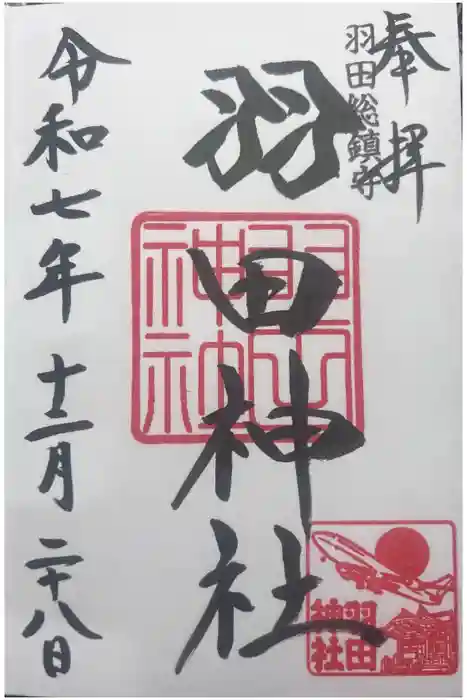 奉拝
羽田総鎮守
羽田神社
令和七年十二月二十八日
羽田
神社
羽田
神社